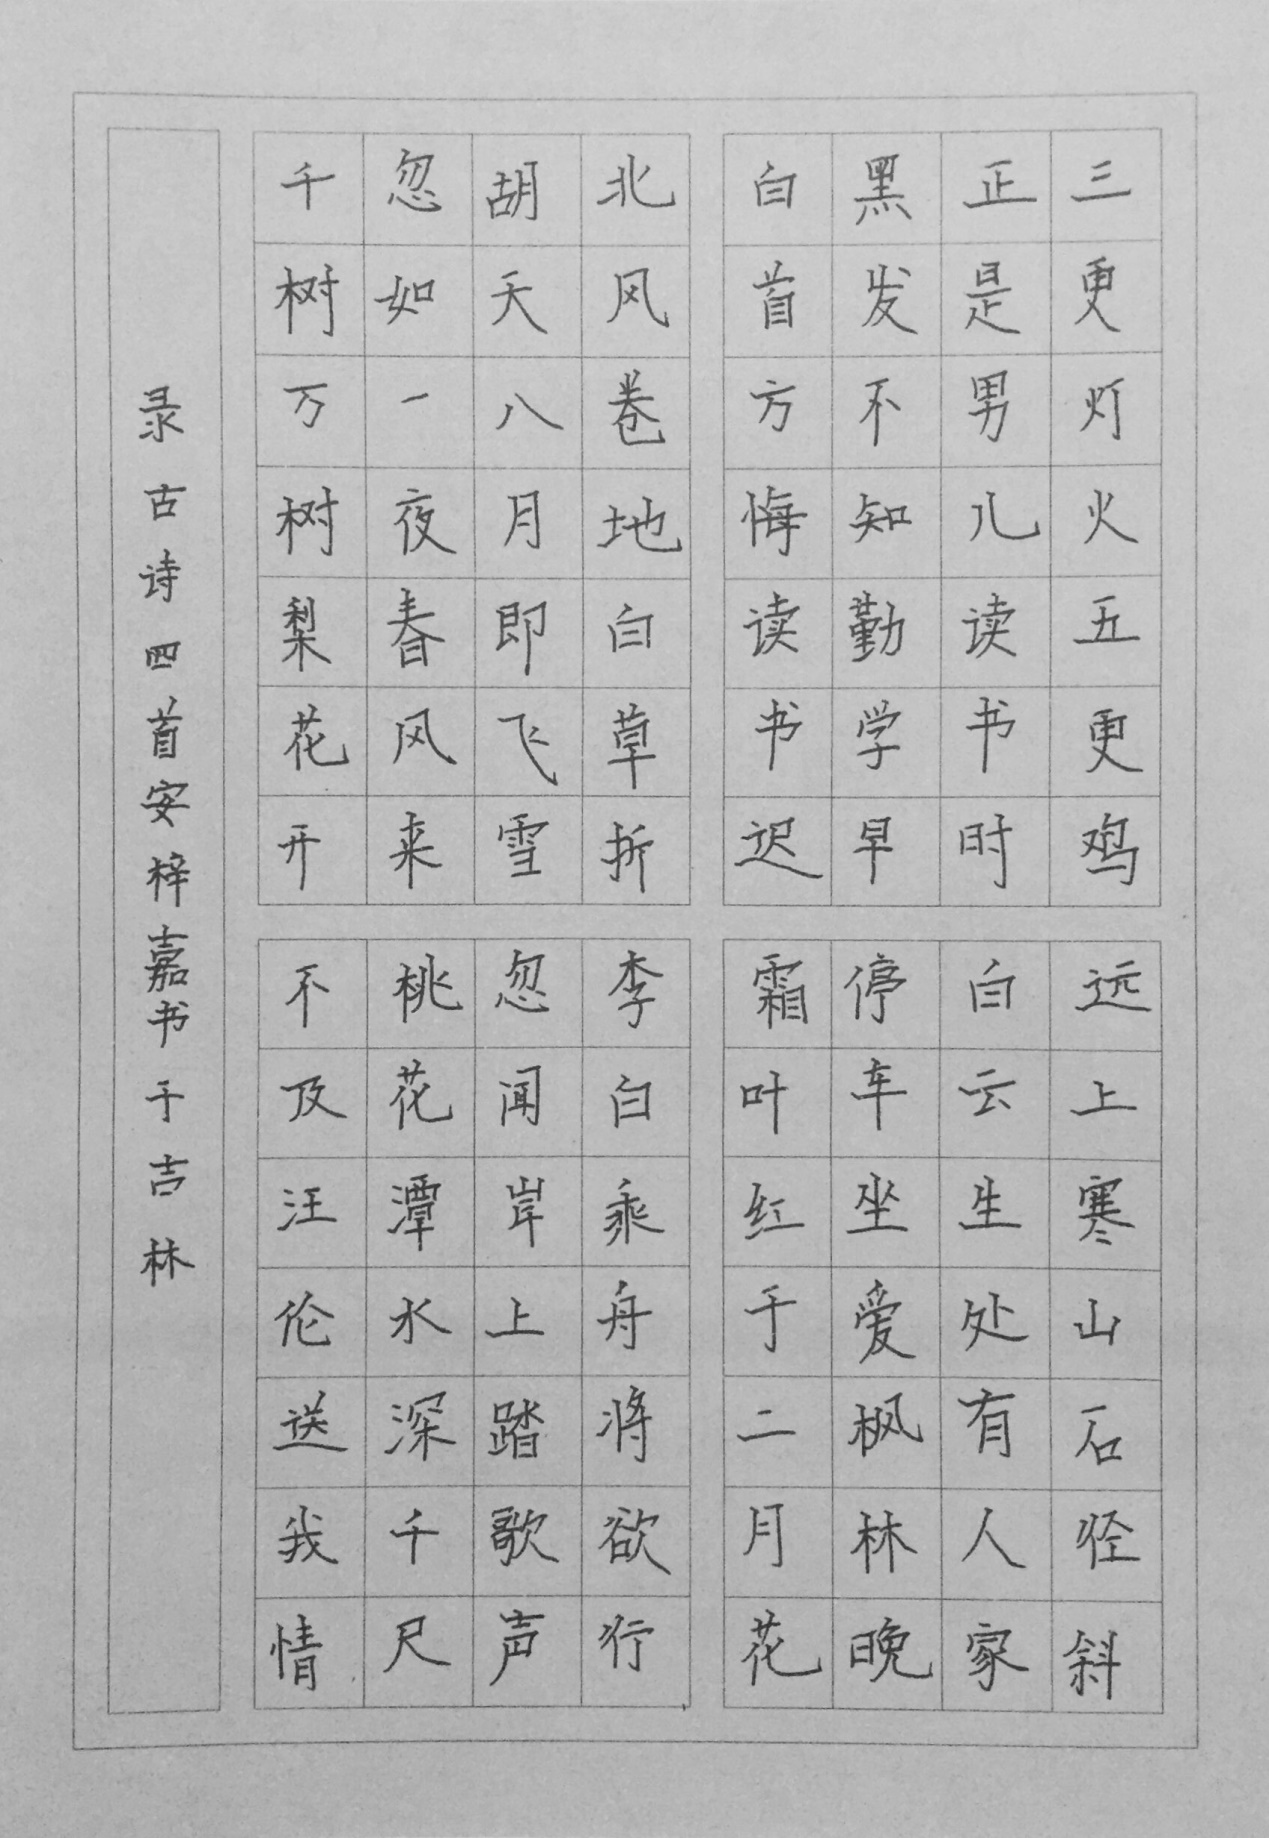 三更灯火五更鸡
正是男儿读书时
黑发不知勤学早
白首方悔读书迟
远上寒山石径斜
白云生处有人家
停车坐爱枫林晚
霜叶红于二月花
北风卷地白草折
胡天八月即飞雪
忽如一夜春风来
千树万树梨花开
李白乘舟将欲行
忽闻岸上踏歌声
桃花潭水深千尺
不及汪伦送我情
录古诗四首安梓嘉书于吉林